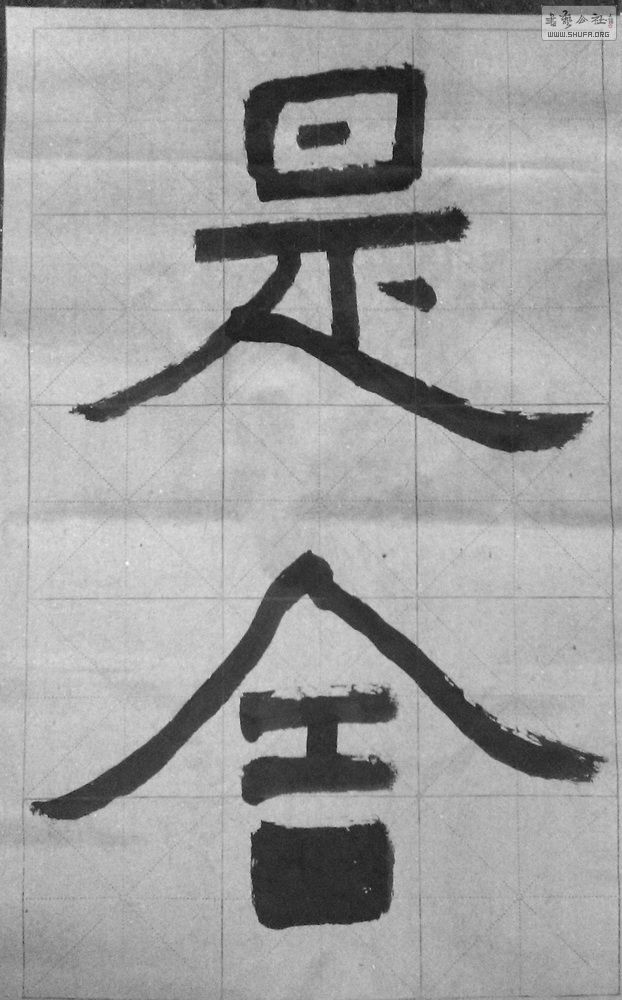 書藝公社
WWW.SHUFA.ORG
是
舍